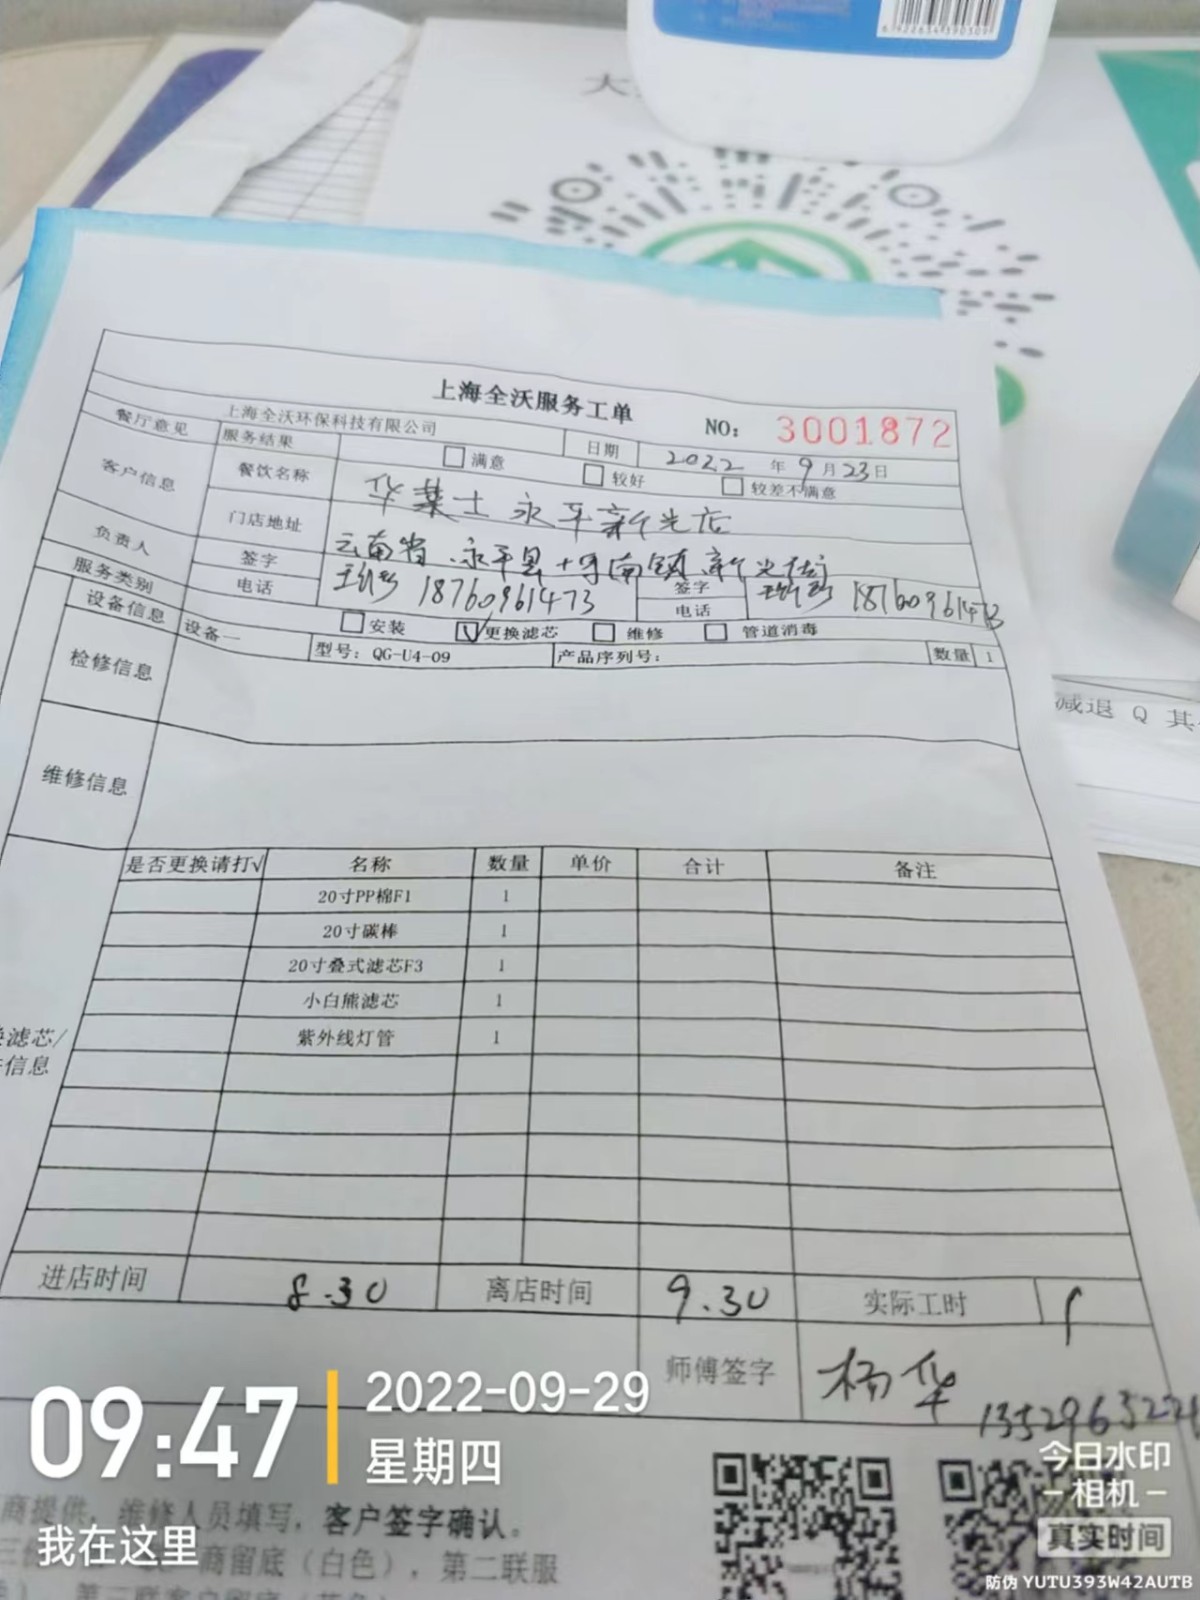 6922634390309
大
上海全沃服务工单
NO: 3001872
上海全沃环保科技有限公司
日期 2022 年 9 月 23 日
餐厅意见 服务结果 满意 较好 较差不满意
客户信息 餐饮名称 华莱士永平新光店
门店地址 云南省永平县博南镇新光街
负责人 签字 签字
电话 18760961473 电话 18760961473
服务类别 安装 ☑更换滤芯 维修 管道消毒
设备信息 设备一 型号: QG-U4-09 产品序列号: 数量 1
检修信息
维修信息
是否更换请打√ 名称 数量 单价 合计 备注
20寸PP棉F1 1
20寸碳棒 1
20寸叠式滤芯F3 1
小白熊滤芯 1
紫外线灯管 1
滤芯/
信息
进店时间 8.30 离店时间 9.30 实际工时 1
师傅签字 杨华
减退 Q 其
09:47
2022-09-29
星期四
我在这里
商提供，维修人员填写，客户签字确认。
商留底（白色），第二联服
今日水印
相机
真实时间
防伪 YUTU393W42AUTB